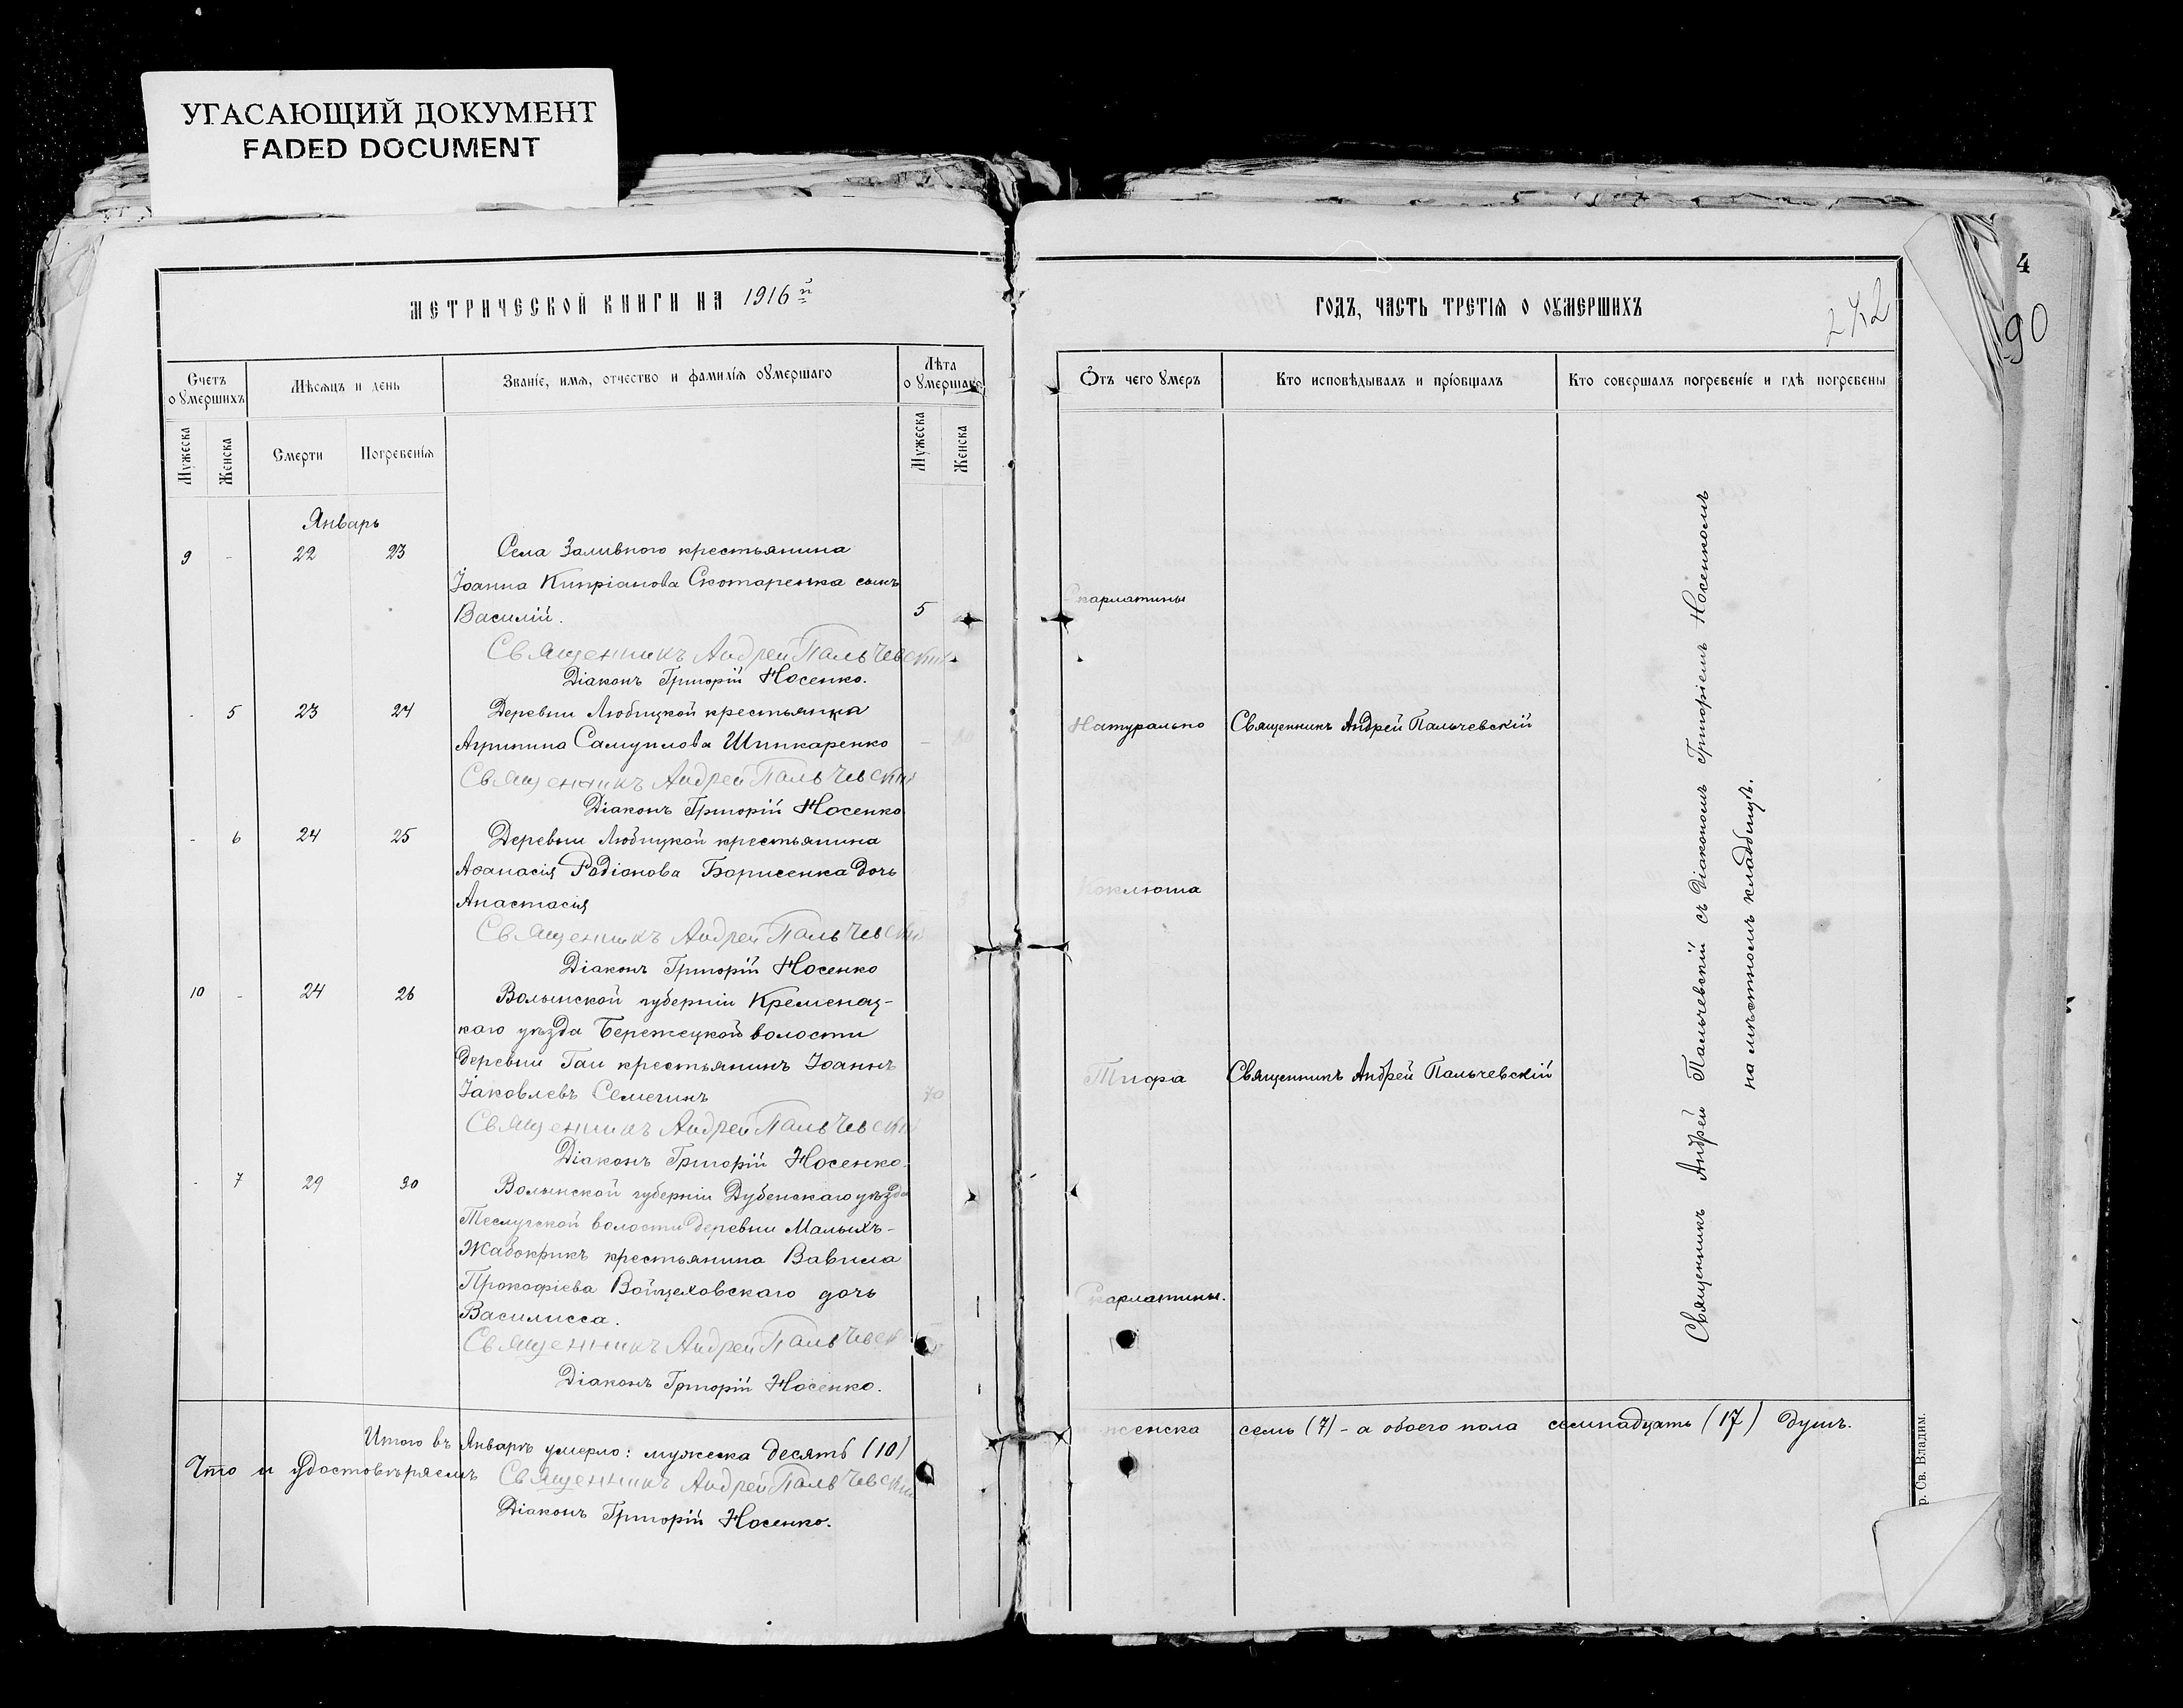 УГАСАЮЩИЙ ДОКУМЕНТ
FADED DOCUMENT
МЕТРИЧЕСКОЙ КНИГИ НА 1916й
Счетъ оумершихъ
Мѣсяцъ и день
Званіе, имя, отчество и фамилія оумершаго
Лѣта оумершаго
Мужеска
Женска
Смерти
Погребенія
Мужеска
Женска
Январь
9 - 22 23 Села Заливного крестьянина
Іоанна Кипріанова Скотаренка сынъ
Василій. 5
Священникъ Андрей Пальчевскій
Діаконъ Григорій Носенко.
- 5 23 24 Деревни Любицкой крестьянка
Агрипина Самуилова Шинкаренко - 80
Священникъ Андрей Пальчевскій
Діаконъ Григорій Носенко
- 6 24 25 Деревни Любицкой крестьянина
Аѳанасія Родіонова Борисенка дочь
Анастасія
Священникъ Андрей Пальчевскій
Діаконъ Григорій Носенко
10 - 24 26 Волынской губерніи Кременец-
каго уѣзда Бережецкой волости
деревни Гаи крестьянинъ Іоаннъ
Іаковлевъ Семегинъ 70
Священникъ Андрей Пальчевскій
Діаконъ Григорій Носенко.
- 7 29 30 Волынской губерніи Дубенскаго уѣзда
Теслугской волости деревни Малыхъ-
Жабокрикъ крестьянина Вавила
Прокофіева Войцеховскаго дочь
Василисса. 1
Священникъ Андрей Пальчевскій
Діаконъ Григорій Носенко.
Итого въ Январѣ умерло: мужеска десять (10)
Что и удостовѣряемъ Священникъ Андрей Пальчевскій
Діаконъ Григорій Носенко.
4
90
272
ГОДЪ, ЧАСТЬ ТРЕТІЯ О ОУМЕРШИХЪ
Отъ чего умеръ
Кто исповѣдывалъ и пріобщалъ
Кто совершалъ погребеніе и гдѣ погребены
Скарлатины
Натурально Священникъ Андрей Пальчевскій
Коклюша
Тифа Священникъ Андрей Пальчевскій
Скарлатины.
Священникъ Андрей Пальчевскій съ діакономъ Григоріемъ Носенкомъ
на мѣстномъ кладбищѣ.
женска семь (7) - а обоего пола семнадцать (17) душъ.
р. Св. Владим.